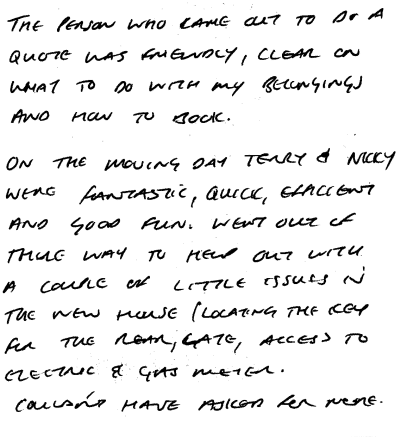 THE PERSON WHO CAME OUT TO DO A
QUOTE WAS FRIENDLY, CLEAR ON
WHAT TO DO WITH MY BELONGINGS
AND HOW TO BOOK.
ON THE MOVING DAY TERRY & NICKY
WERE FANTASTIC, QUICK, EFFICIENT
AND GOOD FUN. WENT OUT OF
THEIR WAY TO HELP OUT WITH
A COUPLE OF LITTLE ISSUES IN
THE NEW HOUSE (LOCATING THE KEY
FOR THE REAR, GATE, ACCESS TO
ELECTRIC & GAS METER.
COULDN'T HAVE ASKED FOR MORE.